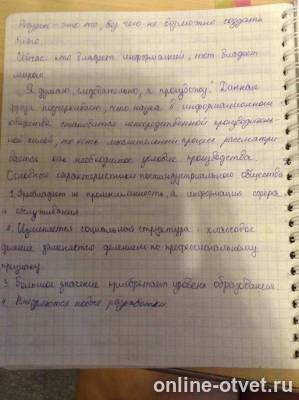 Ресурсы - это то, без чего не возможно создать
благо.
Сейчас кто владеет информацией, тот владеет
миром.
„Я думаю, следовательно, я произвожу." Данная
фраза подчеркивает, что наука в информационном
обществе становится непосредственной производитель
ной силой, то есть мыслительный процесс рассматри-
вается как необходимое условие производства.
Основной характеристикой постиндустриального общества
1. Преобладает не промышленность, а информация сфера
и обслуживания
2. Изменяется социальной структура: классовое
деление заменяется делением по профессиональному
признаку
3. Большое значение приобретает уровень образования
4. Внедряются новые разработки
online-otvet.ru